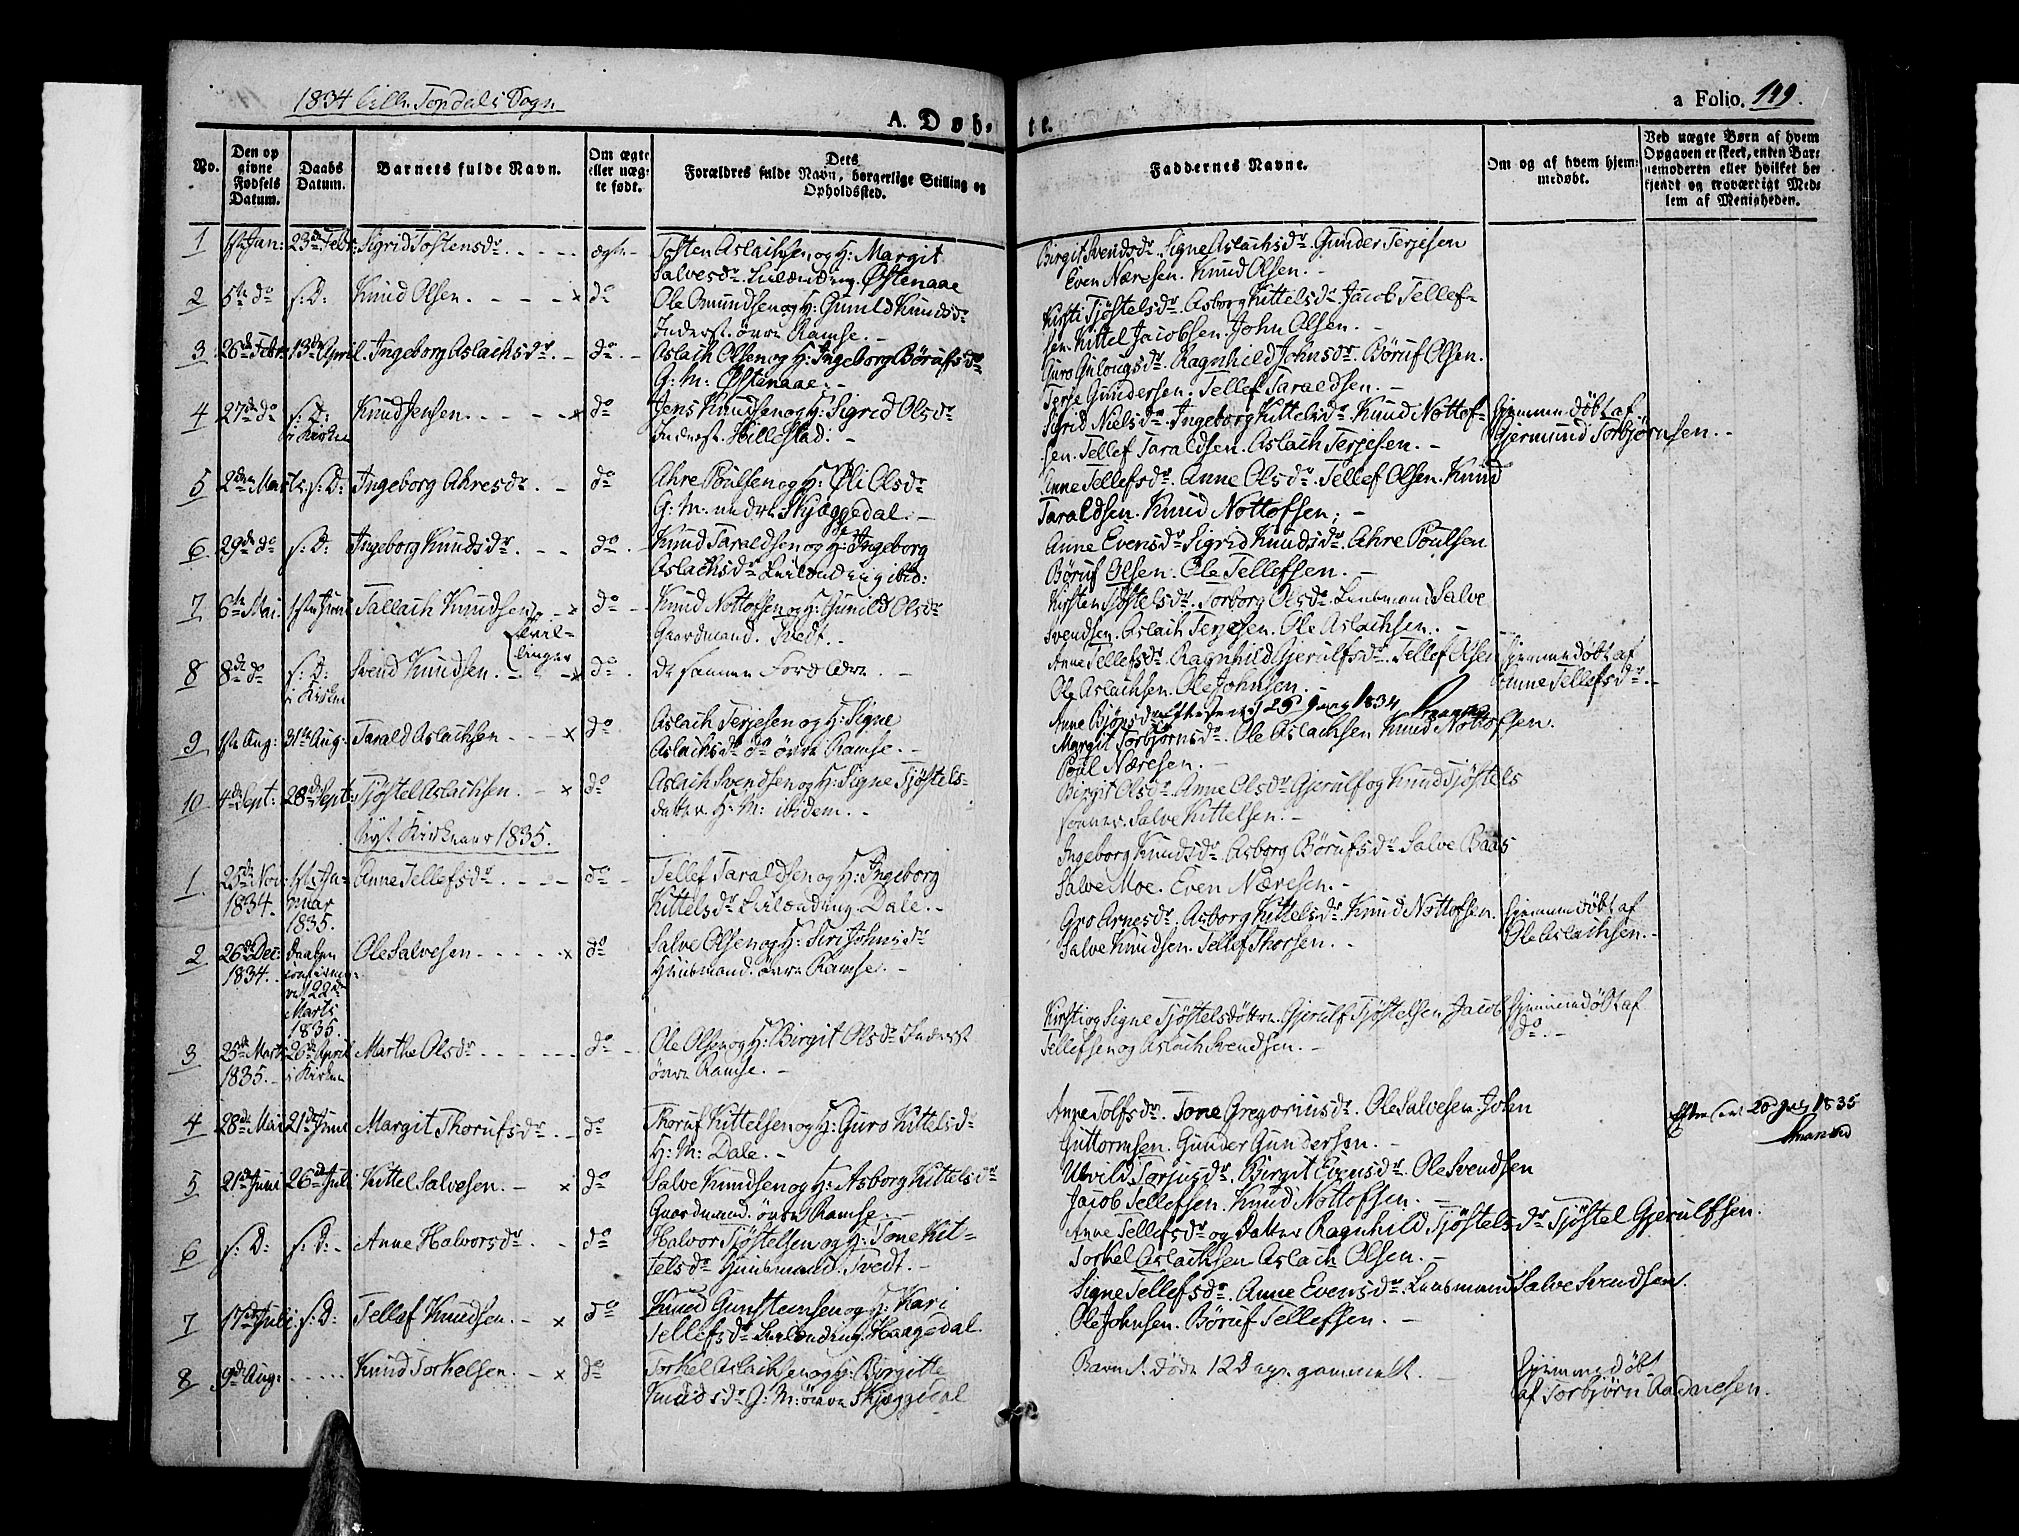 1834 Lille Topdals Sogn
a Folio. 119.
A. Døbte.
No.
Den opgivne Fødsels Datum.
Daabs Datum.
Barnets fulde Navn.
Om ægte eller uægte født.
Dets Forældres fulde Navn, borgerlige Stilling og Opholdssted.
Faddernes Navne.
Om og af hvem hjemmedøbt.
Ved uægte Børn af hvem Opgaven er skeet, enten Barnemoderen eller hvilket bekjendt og troværdigt Medlem af Menigheden.
1 1ste Jan: 23de Febr: Sigrid Tostensdr ægte Tosten Aslachsen og H: Margit
Salvesdr Leilænding Østenaae
Birgit Svendsdr. Signe Aslachsdr. Gunder Terjesen
Even Næresen. Knud Olsen.
2 5te do s: D: Knud Olsen x do Ole Omundsen og H: Gunild Knudsdr
Inderst. øvre Ramse.
Kirsti Tjöstelsdr. Asborg Kittelsdr. Jacob Tellef-
sen. Kittel Jacobsen. John Olsen.
3 26de Febr: 13de April Ingeborg Aslachsdr do Aslach Olsen og H: Ingeborg Börufsdr
G: M: Østenaae.
Guro Gulougsdr. Ragnhild Johnsdr. Böruf Olsen.
Terje Gundersen. Tellef Taraldsen.
4 27de do s: D: i Kirken Knud Jensen x do Jens Knudsen og H: Sigrid Olsdr
Inderst. Hillestad.
Sigrid Nielsdr. Ingeborg Kittelsdr. Knud Nottof-
sen. Tellef Taraldsen. Aslach Terjesen.
Hjemmedøbt af
Gjermund Torbjørnsen.
5 s: D: Ingeborg Ahresdr do Ahre Poulsen og H: Øli Olsdr
G: M. nedre Skjæggedal.
Anne Tellefsdr. Anne Olsdr. Tellef Olsen. Knud
Taraldsen. Knud Nottofsen.
6 29de do s: D: Ingeborg Knudsdr. do Knud Taraldsen og H: Ingeborg
Aslachsdr Leilænding ibid:
Anne Evensdr Sigrid Knudsdr. Ahre Poulsen
Böruf Olsen. Ole Tellefsen.
7 6te Mai 1ste Juni Tallach Knudsen x do Knud Nottofsen og H: Gunild Olsdr
Gaardmand. Tvedt.
Tvil-
linger
Kirsten Tjöstelsdr. Torborg Olsdr. Lensmand Salve
Svendsen. Aslach Terjesen. Ole Aslachsen.
8 8de do s: D: i Kirken Svend Knudsen x do de samme Forældre.
Anne Tellefsdr. Ragnhild Gjerulfsdr. Tellef Olsen
Ole Aslachsen. Ole Johnsen.
Hjemmedøbt af
Anne Tellefsdr.
1834
9 1ste Aug: 31te Aug: Tarald Aslachsen x do Aslach Terjesen og H: Signe
Aslachsdr do øvre Ramse.
Margit Torbjørnsdr. Ole Aslachsen Knud Nottofsen.
Poul Næresen.
10 4de Sept: 28de Sept: Tjöstel Aslachsen x do Aslach Svendsen og H: Signe Tjöstels-
datter H: M: ibidem.
Birgit Olsdr. Anne Olsdr Gjerulf og Knud Tjöstels
sönner. Salve Kittelsen.
Nyt Kirkeaar 1835.
1 25de Nov: 1834. 1ste Januar 1835. Anne Tellefsdr do Tellef Taraldsen og H: Ingeborg
Kittelsdr Leilænding Dale.
Ingeborg Knudsdr. Asborg Börufsdr Salve Baas
Salve Moe. Even Næresen.
2 26de Dec: 1834. Daaben confirmeret 22de Marts 1835. Ole Salvesen x do Salve Olsen og H: Siri Johnsdr
Huusmand. øvre Ramse.
Gro Arnesdr. Asborg Kittelsdr. Knud Nottofsen.
Salve Knudsen. Tellef Thorsen.
Hjemmedøbt af
Ole Aslachsen.
3 25de Marts 1835. 26de April i Kirken Marthe Olsdr do Ole Olsen og H: Birgit Olsdr Inderst
øvre Ramse.
Kirsti og Signe Tjöstelsdöttre. Gjerulf Tjöstelsen Jacob
Tellefsen og Aslach Svendsen.
Hjemmedøbt af
do.
4 28de Mai 21de Juni Margit Thorufsdr do Thoruf Kittelsen og H: Guro Kittelsdr
H: M: Dale.
Anne Tolfsdr. Tone Gregoriusdr. Ole Salvesen. John
Guttormsen. Gunder Gundersen.
1835
5 21de Juni 26de Juli Kittel Salvesen. x do Salve Knudsen og H: Asborg Kittelsdr
Gaardmand. øvre Ramse.
Torjusdr. Birgit Evensdr. Ole Svendsen
Jacob Tellefsen. Knud Nottofsen.
6 s: D: s: D: Anne Halvorsdr. do Halvor Tjöstelsen og H: Tone Kit-
telsdr Huusmand. Tvedt.
Anne Tellefsdr og Datter Ragnhild Tjöstelsdr Tjöstel Gjerulfsen.
Torkel Aslachsen Aslach Olsen.
7 17de Juli s: D: Tellef Knudsen. x do Knud Gunsteinsen og H: Kari
Tellefsdr Leilænding. Haagedal
Signe Tellefsdr. Anne Evensdr. Lensmand Salve Svendsen.
Ole Johnsen. Böruf Tellefsen.
8 9de Aug: Knud Torkelsen. x do Torkel Aslachsen og H: Birgitte
Knudsdr G: M: øvre Skjæggedal
Barnet døde 12 Dage gammelt.
Hjemmedøbt
af Torbjörn Aadnesen.